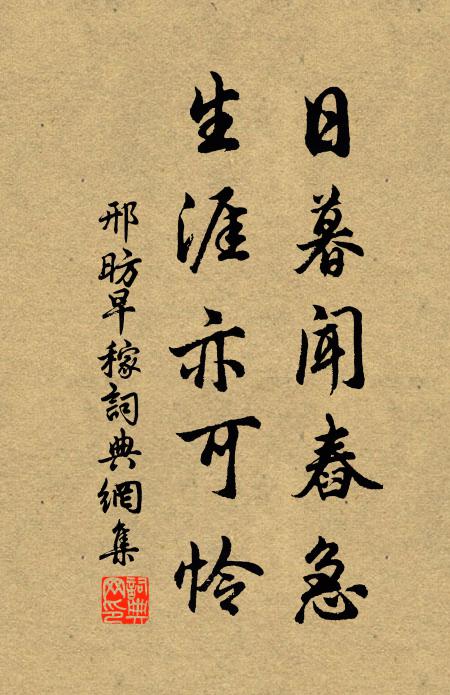 日暮聞舂急
生涯亦可怜
邢昉早稼詞典網集
詞典網印